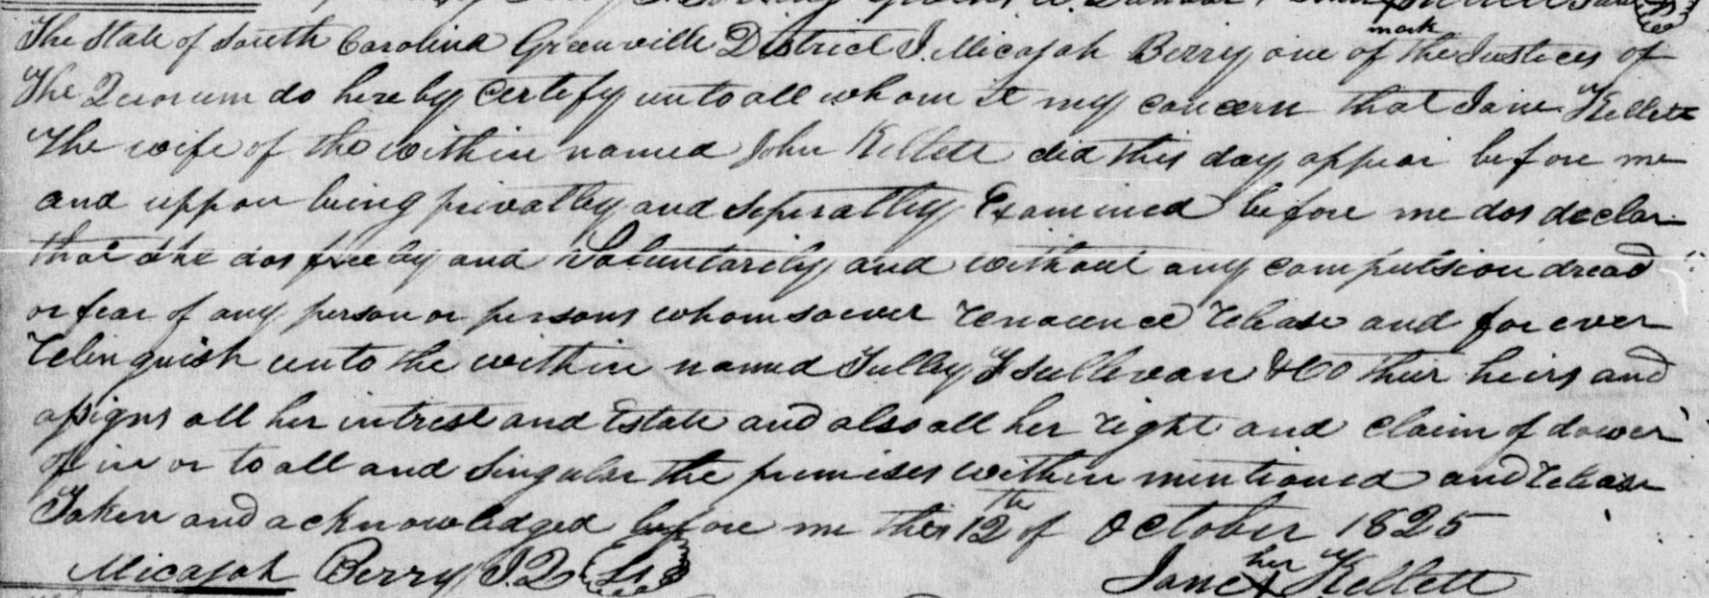 mark
The State of South Carolina Greenville District I. Micajah Berry one of the Justices of
The Quorum do hereby certify unto all whom it my concern that Jane Kellett
The wife of the within named John Kellett did this day appear before me
and uppon being privatley and seperatley Examined before me dos declar
that she dos freely and Voluntarily and without any compulsion dread
or fear of any person or persons whomsoever renounce release and forever
relinquish unto the within named Tulley F Sullivan & Co their heirs and
assigns all her intrest and Estate and also all her right and claim of dower
of in or to all and singular the premises within mentioned and release
Taken and acknowledged before me this 12 th of October 1825
Micajah Berry J. Q. LS
her
Jane X Kellett